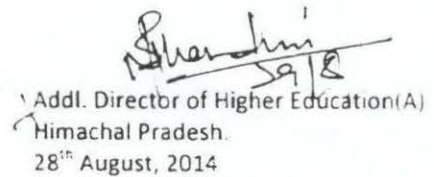 29/8
Addl. Director of Higher Education(A)
Himachal Pradesh.
28th August, 2014